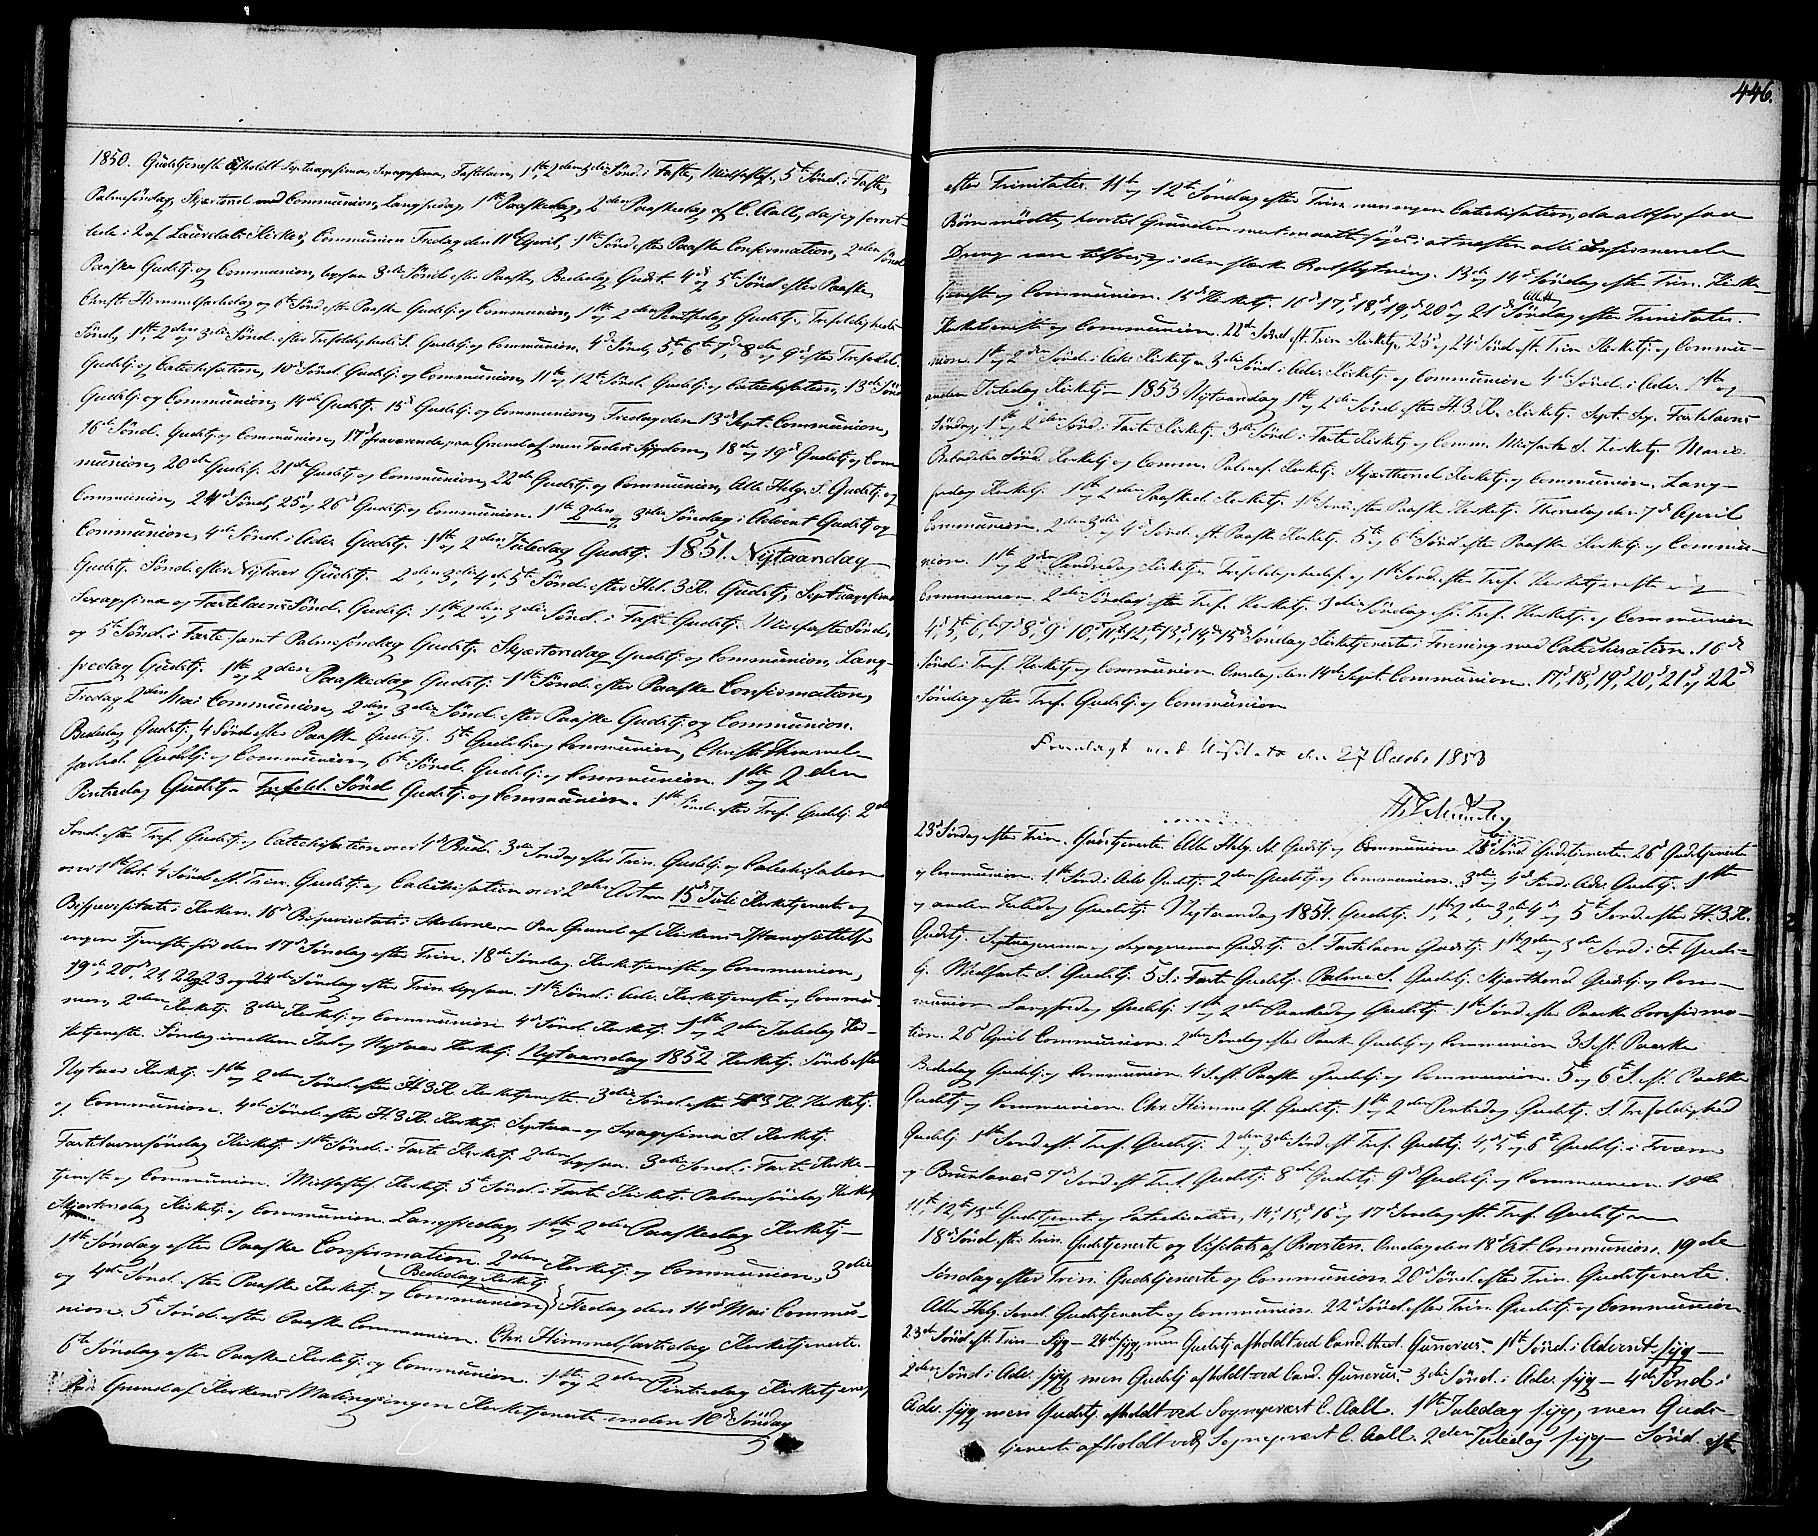 1850. Gudstjeneste afholdt Septuagesima, Sexagesima, Fastelavn, 1ste, 2den, 3die Sønd. i Faste, Midfaste S., 5te Sønd. i Faste,
Palmesøndag, Skjærtorsd. med Communion, Langfredag, 1ste Paaskedag, 2den Paaskedag af C. Aall, da jeg forret-
tede i 2 af Laurdals Kirker, Communion Fredag den 11te April, 1ste Sønd. efter Paaske Confirmation, 2den Sønd.
Paaske Gudstj. og Communion, ligesaa 3die Sønd. efter Paaske, Bededag Gudst. 4de og 5te Sønd. efter Paaske,
Christi Himmelfartsdag og 6te Sønd. efter Paaske Gudstj. og Communion, 1ste og 2den Pentsedag Gudstj., Trefoldigheds
Sønd., 1ste, 2den og 3die Sønd. efter Trefoldigheds S. Gudstj. og Communion. 4de Sønd., 5te, 6te, 7de, 8de og 9de efter Trefoldh.
Gudstj. og Catechisation, 10de Sønd. Gudstj. og Communion, 11te og 12te Sønd. Gudstj. og Catechisation, 13de Sønd.
Gudstj. og Communion, 14de Gudstj. 15de Gudstj. og Communion, Fredag den 13de Sept. Communion,
16de Sønd. Gudstj. og Communion, 17de fraværende, paa Grund af min Faders Sygdom, 18de og 19de Gudstj. og Com-
munion, 20de Gudstj. 21de Gudstj. og Communion, 22de Gudstj. og Communion, Alle Helg. S. Gudstj. og
Communion, 24de Sønd., 25de og 26de Gudstj. og Communion. 1ste, 2den og 3die Søndag i Advent Gudstj. og
Communion, 4de Sønd. i Adv. Gudstj. 1ste og 2den Juledag Gudstj. 1851. Nytaarsdag
Gudstj. Sønd. efter Nytaar Gudstj. 2den, 3die, 4de, 5te Sønd. efter Hel. 3 K. Gudstj., Septuagesima
Sexagesima og Fastelavns Sønd. Gudstj. 1ste, 2den og 3die Sønd. i Faste Gudstj. Midfaste Sønd.
og 5te Sønd. i Faste samt Palmesøndag Gudstj. Skjærtorsdag Gudstj. og Communion, Lang-
fredag Gudstj. 1ste og 2den Paaskedag Gudstj. 1ste Sønd. efter Paaske Confirmation,
Fredag 2den Mai Communion, 2den og 3die Sønd. efter Paaske Gudstj. og Communion.
Bededag Gudstj., 4 Sønd. efter Paaske Gudstj. 5te Gudstj. og Communion, Christi Himmel-
fartsd. Gudstj. og Communion, 6te Sønd. Gudstj. og Communion. 1ste og 2den
Pintsedag Gudstj. Trefold. Sønd. Gudstj. og Communion. 1ste Sønd. efter Tref. Gudstj. 2den
Sønd. efter Tref. Gudstj. og Catechisation over 4de Bud. 3die Søndag efter Trin. Gudstj. og Catechisation
over 1ste Art. 4 Sønd. eft. Trin. Gudstj. og Catechisation over 2den Art. 15de Juli Kirketjeneste og
Bispevisitats i Kirken. 16de Bispevisitats i Skolerne. Paa Grund af Kirkens Istandsættelse
ingen Tjeneste før den 17de Søndag efter Trin. 18de Søndag Kirketjeneste og Communion,
19de, 20de, 21, 22, 23 og 24de Søndag efter Trin. ligesaa. 1ste Sønd. i Adv. Kirketjeneste og Commu-
nion, 2den Kirketj. 3die Kirketj. og Communion 4de Sønd. Kirketj. 1ste og 2den Juledag Kir-
ketjeneste. Søndag imellem Jul og Nytaar Kirketj. Nytaarsdag 1852 Kirketj. Sønd. efter
Nytaar Kirketj. 1ste og 2den Sønd. efter H 3 K. Kirketjeneste 3die Sønd. efter H 3 K. Kirketj.
og Communion. 4de Sønd. efter H. 3 K. Kirketj. Septua- og Sexagesima S. Kirketj.
Fastelavnssøndag Kirketj. 1ste Sønd. i Faste Kirketj. 2den ligesaa. 3die Sønd. i Faste Kirke-
tjeneste og Communion. Midfaste S. Kirketj. 5te Sønd. i Faste Kirketj. Palmesøndag Kirketj.
Skjærtorsdag Kirketj. og Communion. Langfredag, 1ste og 2den Paaskedag Kirketj.
1ste Søndag efter Paaske Confirmation. 2den Kirketj. og Communion, 3die
og 4de Sønd. efter Paaske Kirketj. og Communion (Bededag Kirketj.) Fredag den 14de Mai Commu-
nion. 5te Sønd. efter Paaske Communion. Chr. Himmelfartsdag Kirketjeneste.
6te Søndag efter Paaske Kirketj. og Communion. 1ste og 2den Pintsedag Kirketjenest.
Paa Grund af Kirkens Maling ingen Kirketjeneste inden 10de Søndag
446.
efter Trinitatis. 11te og 12te Søndag efter Trin. men ingen Catechisation, da altfor faa
Børn mødte, hvortil Grunden mest maatte søges i at næsten alle confirmerede
Dreng var tilfjelds i den stærke Bortflytning. 13de og 14de Søndag efter Trin. Kirke-
tjeneste og Communion. 15de Kirketj. 16de 17de, 18de, 19de, 20de og 21de Søndag efter Trinitatis.
Kirketjeneste og Communion. 22de Sønd. eft. Trin. Kirketj. 23de og 24de Sønd. eft. Trin. Kirketj. og Commu-
nion. 1ste og 2den Sønd. i Adv. Kirketj. 3die Sønd. i Adv. Kirketj. og Communion 4de Sønd. i Adv. 1ste og
anden Juledag Kirketj. 1853 Nytaarsdag 1ste og 2den Sønd. efter H. 3 K. Kirketj. Sept. Sex. Fastelavns
Søndag, 1ste og 2den Sønd. i Faste Kirketj. 3die Sønd. i Faste Kirketj. og Comm. Midfaste S. Kirketj. Mariæ
Bebudelse Sønd. Kirketj. og Comm. Palmes. Kirketj. Skjærthorsd. Kirketj. og Communion. Lang-
fredag Kirketj. 1ste og 2den Paasked. Kirketj. 1ste Sønd. efter Paaske Kirketj. Thorsdag den 7de April
Communion. 2den, 3die og 4de Sønd. eft. Paaske Kirketj. 5te og 6te Sønd. efter Paaske Kirketj. og Commu-
nion. 1ste og 2den Pindsedag Kirketj. Trefoldigheds S. og 1ste Sønd. efter Tref. Kirketjeneste og
Communion. 2den Søndag efter Tref. Kirketj. 3die Søndag eft. Tref. Kirketj. og Communion
4de, 5te, 6te, 7de, 8de, 9de 10de, 11te, 12te, 13de, 14de, 15de Søndag Kirketjeneste i Forening med Catechisation. 16de
Sønd. i Tref. Kirketj. og Communion. Onsdag den 14de Sept. Communion. 17de, 18de, 19de, 20de, 21de og 22de
Søndag efter Tref. Gudstj. og Communion
Fremlagt ved Visitats den 27 Octobr 1853

23de Søndag efter Trin. Gudstjeneste Alle Helg. S. Gudstj. og Communion. 25de Sønd. Gudstjeneste. 26de Gudstjeneste
og Communion. 1ste Sønd. i Adv. Gudstj. 2den Gudstj. og Communion. 3die og 4de Sønd. i Adv. Gudstj. 1ste
og anden Juledag Gudstj. Nytaarsdag 1854. Gudstj. 1ste, 2den, 3die, 4de og 5te Sønd. efter H. 3 K.
Gudstj. Septuagesima og Sexagesima Gudstj. S. Fastelavn Gudstj. 1ste 2den og 3die Sønd. i F. Guds-
tj. Midfaste S. Gudstj. 5 S. i Faste Gudstj. Palme S. Gudstj. Skjærthorsd. Gudstj. og Com-
munion Langfredag Gudstj. 1ste og 2den Paaskedag Gudstj. 1ste Sønd. efter Paaske Confirma-
tion. 26de April Communion. 2den Søndag efter Paask. Gudstj. og Communion 3 S. eft. Paaske
Bededag Gudstj. og Communion. 4 S. eft. Paaske Gudstj. og Communion. 5te og 6te S. eft. Paaske
Gudstj. og Communion. Chr. Himmelf. Gudstj. 1ste og 2den Pintsedag Gudstj. S. Trefoldighed
Gudstj. 1ste Sønd. eft. Tref. Gudstj. 2den, 3die Sønd. eft. Tref. Gudstj. 4de, 5te og 6te Gudstj. i Fræm
og Brunlanes 7de Sønd. eft. Tref. Gudstj. 8de Gudstj. 9de Gudstj. og Communion. 10de
11te, 12te, 13de Gudstjeneste og Catechisation, 14de, 15de, 16de og 17de Søndag eft. Tref. Gudstj.
18de Sønd. efter Trin. Gudstjeneste og Visitats af Provsten. Onsdag den 18de Oct. Communion. 19de
Søndag efter Trin. Gudstjeneste og Communion. 20de Sønd. efter Trin. Gudstjeneste.
Alle Helg. Sønd. Gudstjeneste og Communion. 22de Sønd. efter Trin. Gudstj. og Communion
23de Sønd. eft. Trin. Syg - 24de syg, men Gudstj. afholdt ved Cand. theol. Gunerius. 1ste Sønd. i Advent syg -
2den Sønd. i Adv. syg men Gudstj. afholdt ved Cand. Gunerius. 3die Sønd. i Adv. syg - 4de Sønd. i
Adv. syg, men Gudstj. afholdt ved Sogneprest C. Aall. 1ste Juledag syg, men Guds-
tjeneste afholdt ved Sogneprest C. Aall. 2den Juledag syg - Sønd. eft.